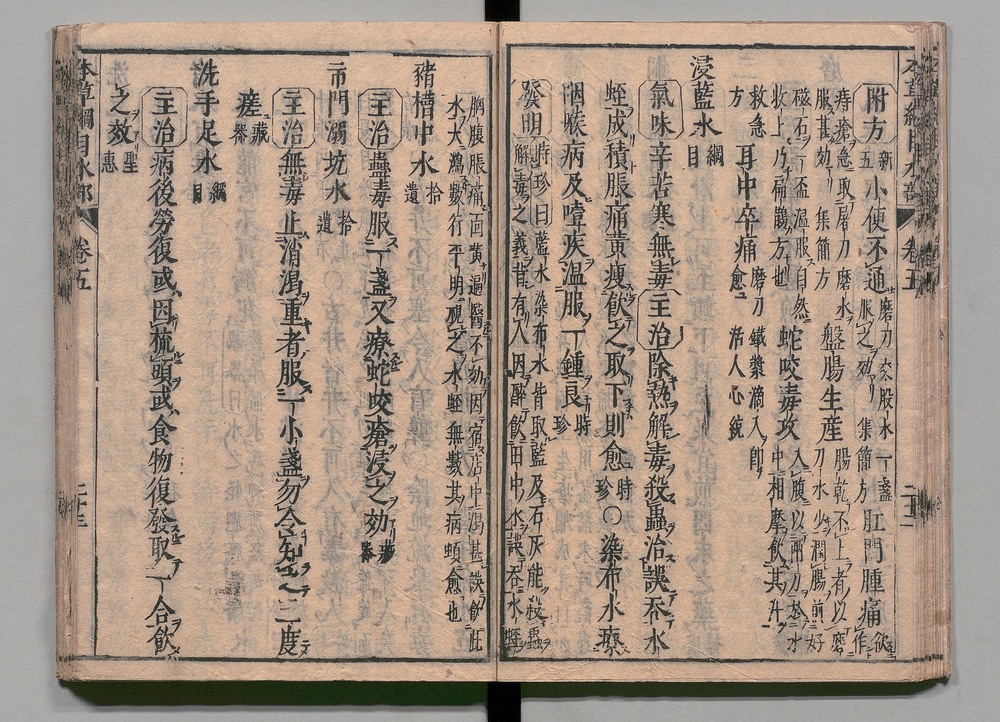 本草綱目水部 卷五
附方 新五 小便不通 磨刀交股水一盞服之効 集簡方 肛門腫痛 欲作
痔瘡急取屠刀磨水服甚効 集簡方 盤腸生産 腸乾不上者以磨刀水少潤腸煎好
磁石一盃溫服自然收上乃扁鵲方也 蛇咬毒攻 入腹以兩刀於水中相摩飲其汁
救急方 耳中卒痛 磨刀鐵漿滴入即愈 活人心統
浸藍水 綱目
氣味 辛苦寒無毒 主治 除熱解毒殺蟲治誤吞水
蛭成積脹痛黃瘦飲之取下則愈 時珍 ○染布水療
咽喉病及噎疾溫服一鍾良 時珍
發明 時珍曰藍水染布水皆取藍及石灰能殺蟲
解毒之義昔有人因醉飲田中水誤吞水蛭
胸腹脹痛面黃遍醫不効因宿店中渴甚誤飲此
水大瀉數行平明視之水蛭無數其病頓愈也
豬槽中水 拾遺
主治 蠱毒服一盞又療蛇咬瘡浸之効 藏器
市門溺坑水 拾遺
主治 無毒止消渴重者服一小盞勿令知之三度
瘥 藏器
洗手足水 綱目
主治 病後勞復或因梳頭或食物復發取一合飲
之効 聖惠
本草綱目水部 卷五